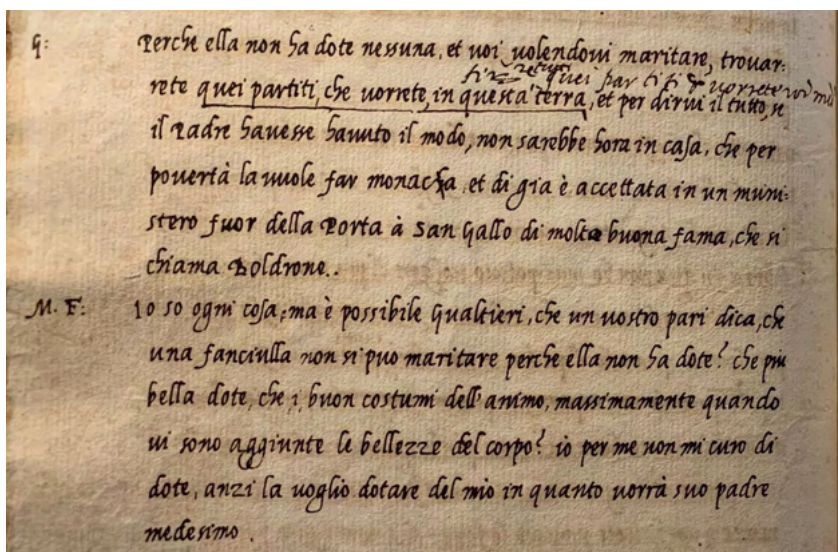 G: Perche ella non ha dote nessuna, et voi volendovi maritare, trovar:
quei partiti vorrete voi med
rete quei partiti, che vorrete, in questa terra, et per dirvi il tutto, se
il Padre havesse havuto il modo, non sarebbe hora in casa, che per
povertà la vuole far monacha, et di gia è accettata in un muni:
stero fuor della Porta à San Gallo di molta buona fama, che si
chiama Boldrone..
M. F: Io so ogni cosa, ma è possibile Gualtieri, che un vostro pari dica, che
una fanciulla non si puo maritare perche ella non ha dote? che piu
bella dote, che i buon costumi dell'animo, massimamente quando
vi sono aggiunte le bellezze del corpo? io per me non mi curo di
dote, anzi la voglio dotare del mio in quanto vorrà suo padre
medesimo.